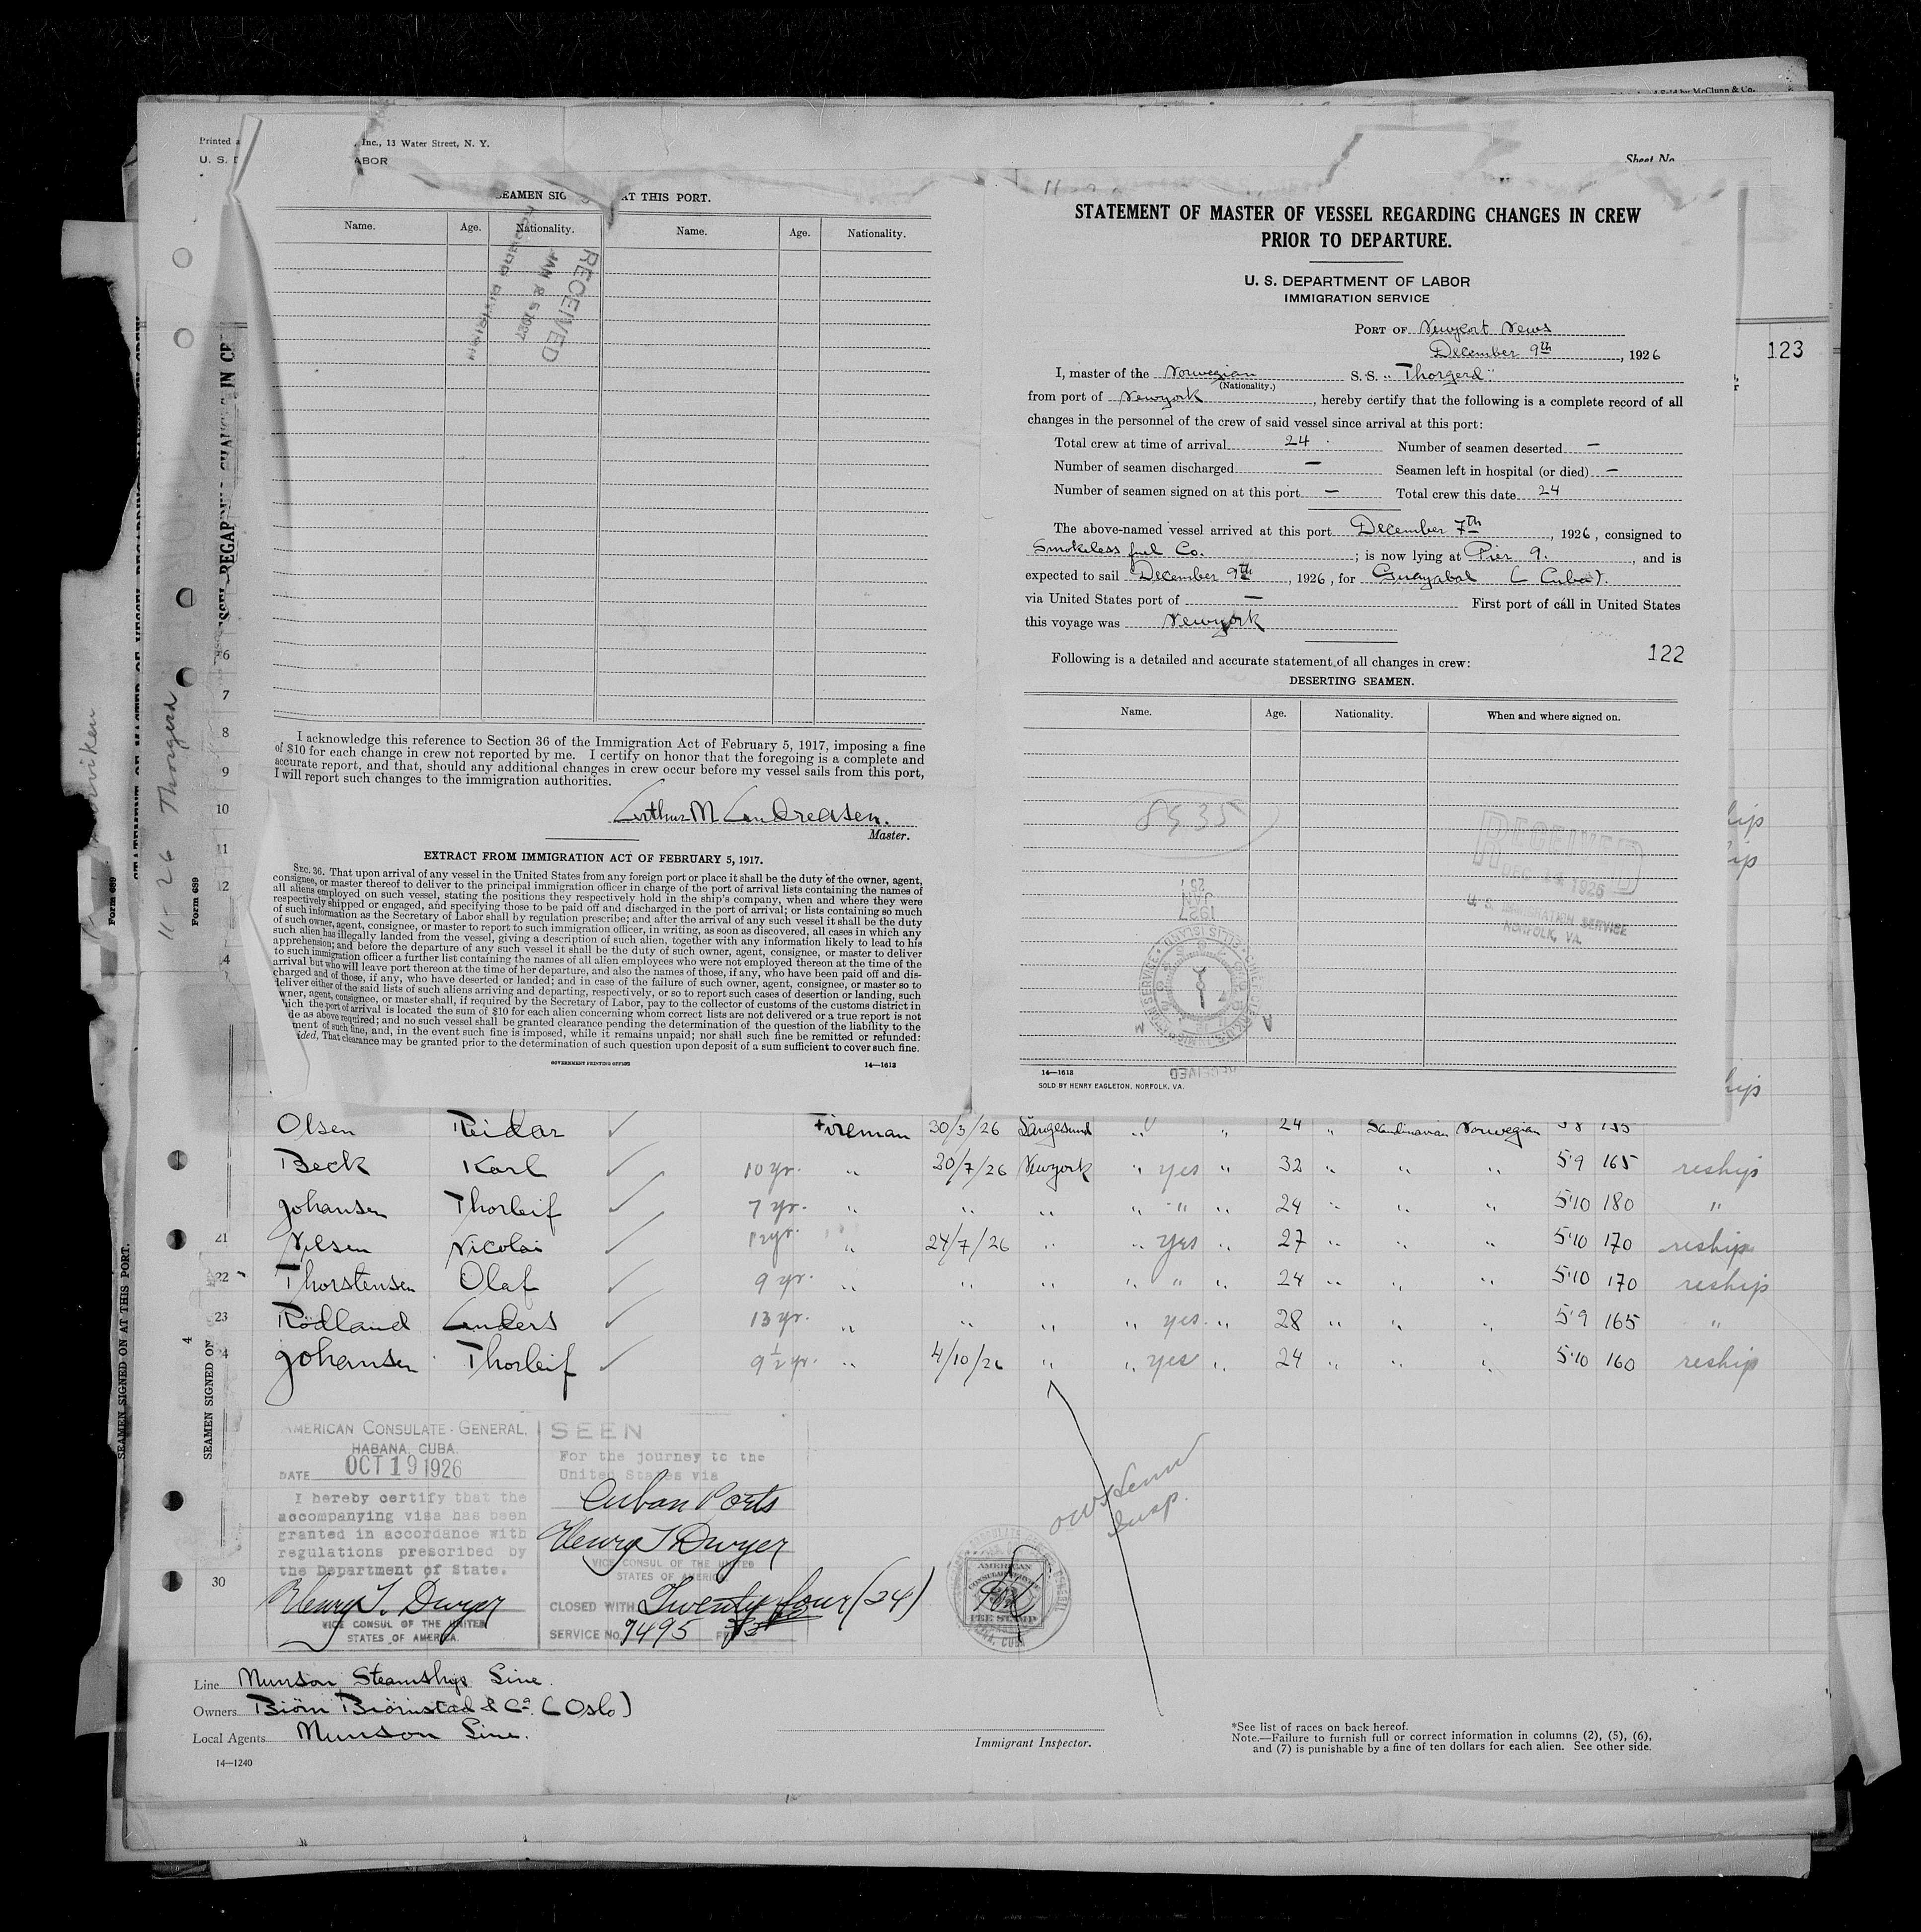 Printed a
Inc., 13 Water Street, N. Y.
U. S. D
ABOR
Sheet No.
SEAMEN SIG
AT THIS PORT.
Name. Age. Nationality. Name. Age. Nationality.
RECEIVED
I acknowledge this reference to Section 36 of the Immigration Act of February 5, 1917, imposing a fine
of $10 for each change in crew not reported by me. I certify on honor that the foregoing is a complete and
accurate report, and that, should any additional changes in crew occur before my vessel sails from this port,
I will report such changes to the immigration authorities.
Arthur M Andreasen.
Master.
EXTRACT FROM IMMIGRATION ACT OF FEBRUARY 5, 1917.
SEC. 36. That upon arrival of any vessel in the United States from any foreign port or place it shall be the duty of the owner, agent,
consignee, or master thereof to deliver to the principal immigration officer in charge of the port of arrival lists containing the names of
all aliens employed on such vessel, stating the positions they respectively hold in the ship's company, when and where they were
respectively shipped or engaged, and specifying those to be paid off and discharged in the port of arrival; or lists containing so much
of such information as the Secretary of Labor shall by regulation prescribe; and after the arrival of any such vessel it shall be the duty
of such owner, agent, consignee, or master to report to such immigration officer, in writing, as soon as discovered, all cases in which any
such alien has illegally landed from the vessel, giving a description of such alien, together with any information likely to lead to his
apprehension; and before the departure of any such vessel it shall be the duty of such owner, agent, consignee, or master to deliver
to such immigration officer a further list containing the names of all alien employees who were not employed thereon at the time of the
arrival but who will leave port thereon at the time of her departure, and also the names of those, if any, who have been paid off and dis-
charged and of those, if any, who have deserted or landed; and in case of the failure of such owner, agent, consignee, or master so to
deliver either of the said lists of such aliens arriving and departing, respectively, or so to report such cases of desertion or landing, such
wner, agent, consignee, or master shall, if required by the Secretary of Labor, pay to the collector of customs of the customs district in
hich the port of arrival is located the sum of $10 for each alien concerning whom correct lists are not delivered or a true report is not
de as above required; and no such vessel shall be granted clearance pending the determination of the question of the liability to the
ment of such fine, and, in the event such fine is imposed, while it remains unpaid; nor shall such fine be remitted or refunded:
ided, That clearance may be granted prior to the determination of such question upon deposit of a sum sufficient to cover such fine.
GOVERNMENT PRINTING OFFICE 14—1613
STATEMENT OF MASTER OF VESSEL REGARDING CHANGES IN CREW
PRIOR TO DEPARTURE.
U. S. DEPARTMENT OF LABOR
IMMIGRATION SERVICE
PORT OF Newport News
December 9th, 1926
I, master of the Norwegian S.S. "Thorgerd"
(Nationality.)
from port of Newyork, hereby certify that the following is a complete record of all
changes in the personnel of the crew of said vessel since arrival at this port:
Total crew at time of arrival 24 Number of seamen deserted —
Number of seamen discharged — Seamen left in hospital (or died) —
Number of seamen signed on at this port — Total crew this date 24
The above-named vessel arrived at this port December 7th, 1926, consigned to
Smokeless fuel Co.; is now lying at Pier 9., and is
expected to sail December 9th, 1926, for Guayabal (Cuba).
via United States port of — First port of call in United States
this voyage was Newyork
122
Following is a detailed and accurate statement of all changes in crew:
DESERTING SEAMEN.
Name. Age. Nationality. When and where signed on.
8535
RECEIVED
DEC 14 1926
U. S. IMMIGRATION SERVICE
NORFOLK, VA.
JAN
1927
RECEIVED
14—1613
SOLD BY HENRY EAGLETON, NORFOLK, VA.
123
Form 689
Form 689
11-26 Thorgerd
6
7
8
9
10
11
12
Olsen Reidar Fireman 30/3/26 Langesund " " 24 " Scandinavian Norwegian
Beck Karl 10 yr. " 20/7/26 Newyork " yes " 32 " " " 5'9 165 reship
Johansen Thorleif 7 yr. " " " " " " 24 " " " 5'10 180 "
21 Nilsen Nicolai 12 yr. " 24/7/26 " " yes " 27 " " " 5'10 170 reship
22 Thorstensen Olaf 9 yr. " " " " " " 24 " " " 5'10 170 reship
23 Rödland Anders 13 yr. " " " " yes " 28 " " " 5'9 165 "
24 Johansen Thorleif 9½ yr. " 4/10/26 " " yes " 24 " " " 5'10 160 reship
SEAMEN SIGNED ON AT THIS PORT.
SEAMEN SIGNED ON
4
AMERICAN CONSULATE-GENERAL,
HABANA, CUBA.
DATE OCT 19 1926
I hereby certify that the
accompanying visa has been
granted in accordance with
regulations prescribed by
the Department of State.
Henry T. Dwyer
VICE CONSUL OF THE UNITED
STATES OF AMERICA.
SEEN
For the journey to the
United States via
Cuban Ports
Henry T. Dwyer
VICE CONSUL OF THE UNITED
STATES OF AMERICA
CLOSED WITH Twenty four (24)
SERVICE No. 7495
Insp.
AMERICAN
CONSULAR SERVICE
FEE STAMP
30
Line Munson Steamship Line.
Owners Biörn Biörnstad & Co. (Oslo)
Local Agents Munson Line.
14—1240
Immigrant Inspector.
*See list of races on back hereof.
Note.—Failure to furnish full or correct information in columns (2), (5), (6),
and (7) is punishable by a fine of ten dollars for each alien. See other side.